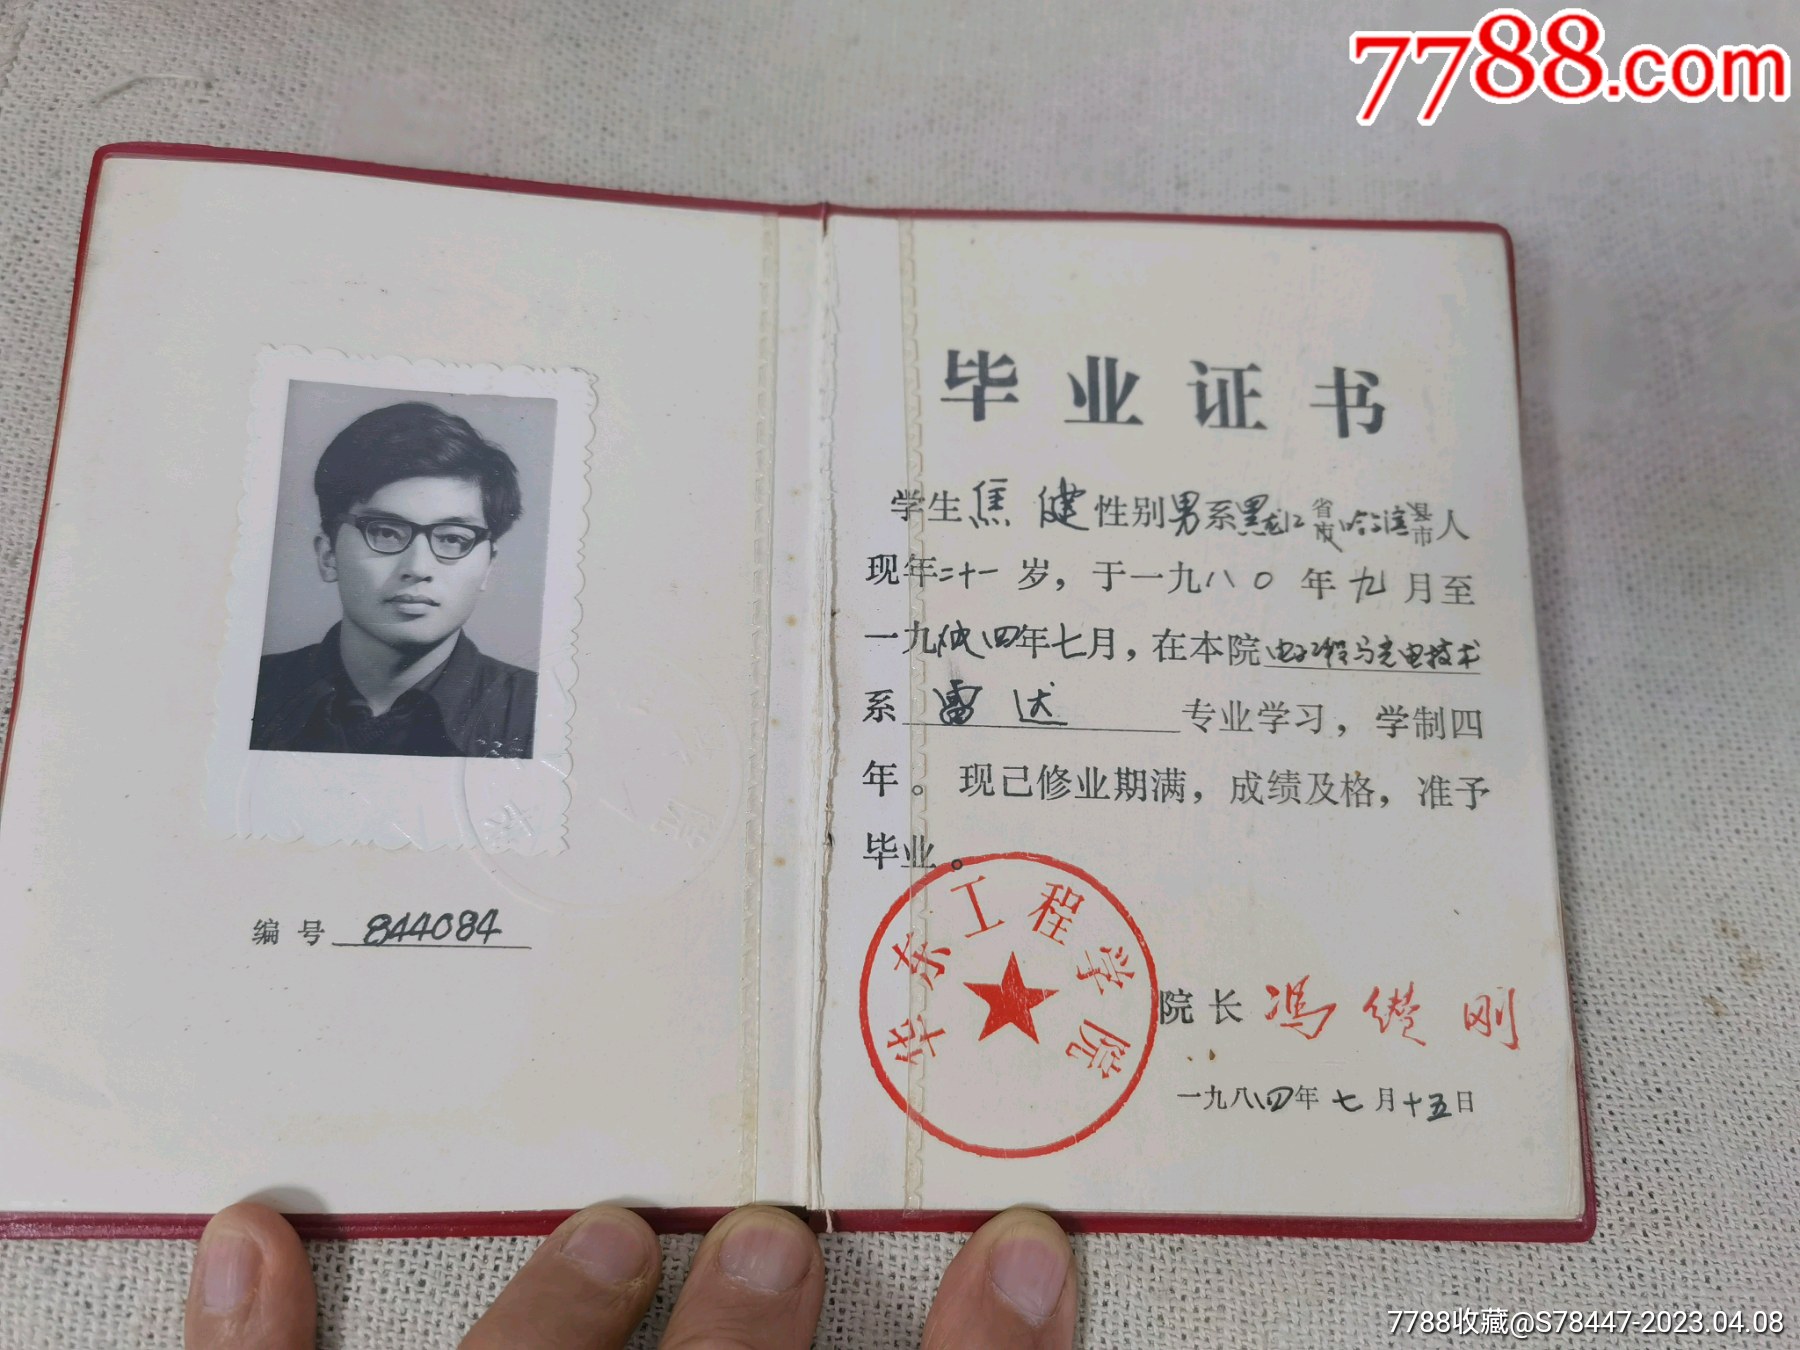 7788.com
毕业证书
学生焦健性别男系黑龙江省市哈尔滨县市人
现年二十一岁，于一九八〇年九月至
一九八四年七月，在本院电子工程与光电技术
系雷达专业学习，学制四
年。现已修业期满，成绩及格，准予
毕业。
编号 844084
华东工程学院
院长 冯缵刚
一九八四年七月十五日
7788收藏@S78447-2023.04.08